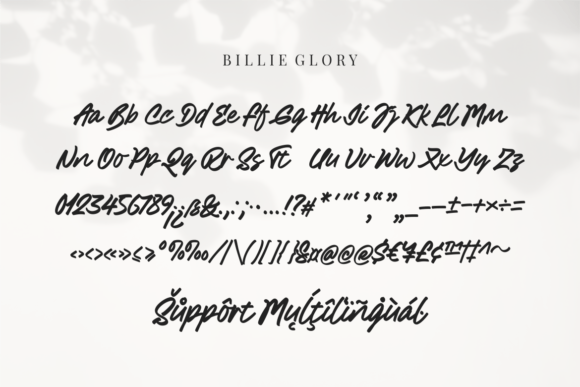 BILLIE GLORY
Aa Bb Cc Dd Ee Ff Gg Hh Ii Jj Kk Ll Mm
Nn Oo Pp Qq Rr Ss Tt Uu Vv Ww Xx Yy Zz
0123456789¡¿ß&.,:;·-…!?#*'"‘’“”‚„_–—±-+×÷=
‹›<>«»≤≥°%‰/|\()[]{}§¤@@@$€¥£¢™†‡^~
Šůppôrt Mųĺţïlïñġùáĺ